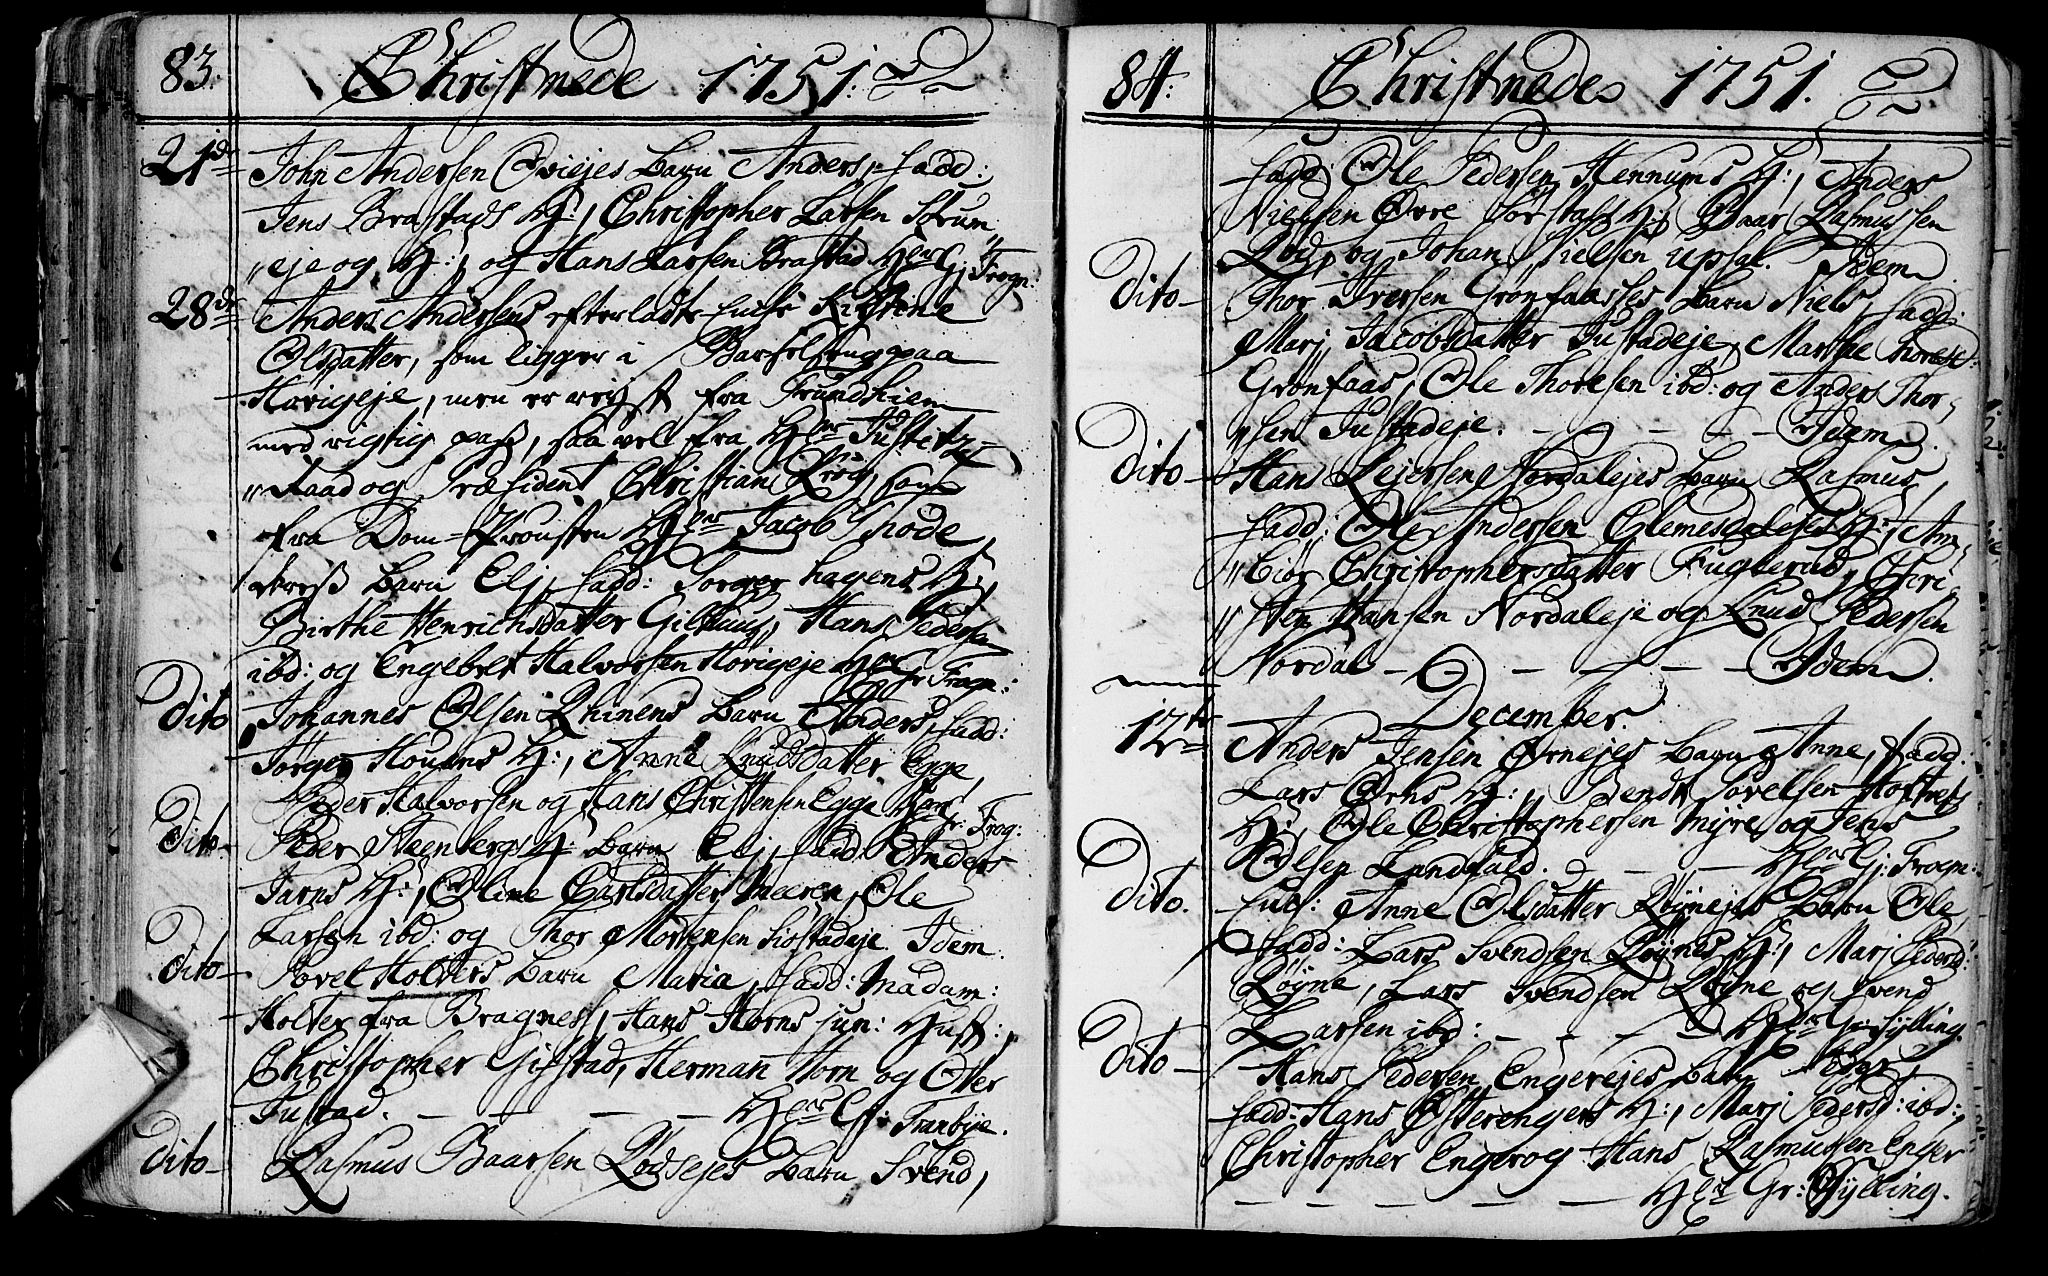 83. Christnede 1751.
21de John Andersen Qviejes barn Anders, Fadd:
Jens Brastads H:, Christopher Larsen Strum
"eje og H:, og Hans Larsen Brastad Hler G: Frogn:
28de Anders Andersens efterladte Enche Kirstine
Olsdatter, som ligger i Barselseng paa
Horigeje, men er reyst fra Trundhiem
med rigtig pass, saa vel fra Hler Justitz
"Raad og Præsident Christian Krog, som
fra Dom-Provsten Hler Jacob Thode,
barn Elj, Fadd: Hagens H:,
Birthe Henrichsdatter Gilhuus, Hans Pedersen
ibd: og Engebret Halvorsen Horigeje Hler Gr Frogn:
Dito Johannes Olsen Rhinens barn Anders, Fadd:
Jørgen Houens H:, Anne Knudsdatter Egge,
Peder Halvorsen og Hans Christensen Egge Hler Gr: Frog:
Dito. Peder Steenbergs H: barn Elj, Fadd: Anders
Jarns H:, Oline Carlsdatter Mæren, Ole
Larsen ibd: og Thor Mortensen Liøstadeje. Idem.
Dito Povel Holters barn Maria, Fadd: Madam:
Holter fra Bragness, Hans Horns jun: Hust:,
Christopher Gifstad, Herman Horn og Otter
Justad. — — — — Hler G: Tranbye.
Dito Rasmus Baarsen Rødsejes barn Svend,
84. Christnede 1751.
Fadd: Ole Pedersen Hennums H:, Anders
Nielsen Øvre Sørstads H: Baar Rasmussen
Rød, og Johan Nielsen Upsal. Idem
Dito Thor Iversen Grønfaasses barn Niels, Fadd:
Marj Jacobsdatter Justadeje, Marthe Thoresd:
Grønfaas, Ole Thoresen ibd: og Anders Thor-
"sen Justadeje. — — — — Idem.
Dito Hans Nordalejes barn Rasmus,
Fadd: Ole Andersen Clemesdalejes H:, Am-
"biør Christophersdatter Fuglerud, Chri-
"sten Hansen Nordaleje og Knud Pedersen
Nordal — — — — Idem.
December
12te Anders Jensen Ørnejes barn Anne, Fadd:
Lars Ørns H:, Bendt Povelsen Holtnes
H:, Ole Christophersen Myre, og Jens
Olsen Landfald. — — Hler G: Frogn:
Dito. Enc: Anne Olsdatter Røynejes barn Ole,
Fadd: Lars Svendsen Røynes H:, Marj Pedersd:
Røyne, Lars Svendsen Røyne og Svend
Larsen ibd: — — — Hler Gr: Sylling.
Dito Hans Pedersen Engerejes barn Peder,
Fadd: Hans Østerengers H:, Marj Pedersd: ibd:,
Christopher Enger og Hans Rasmussen Enger
— — — — Hler Gr: Sylling.